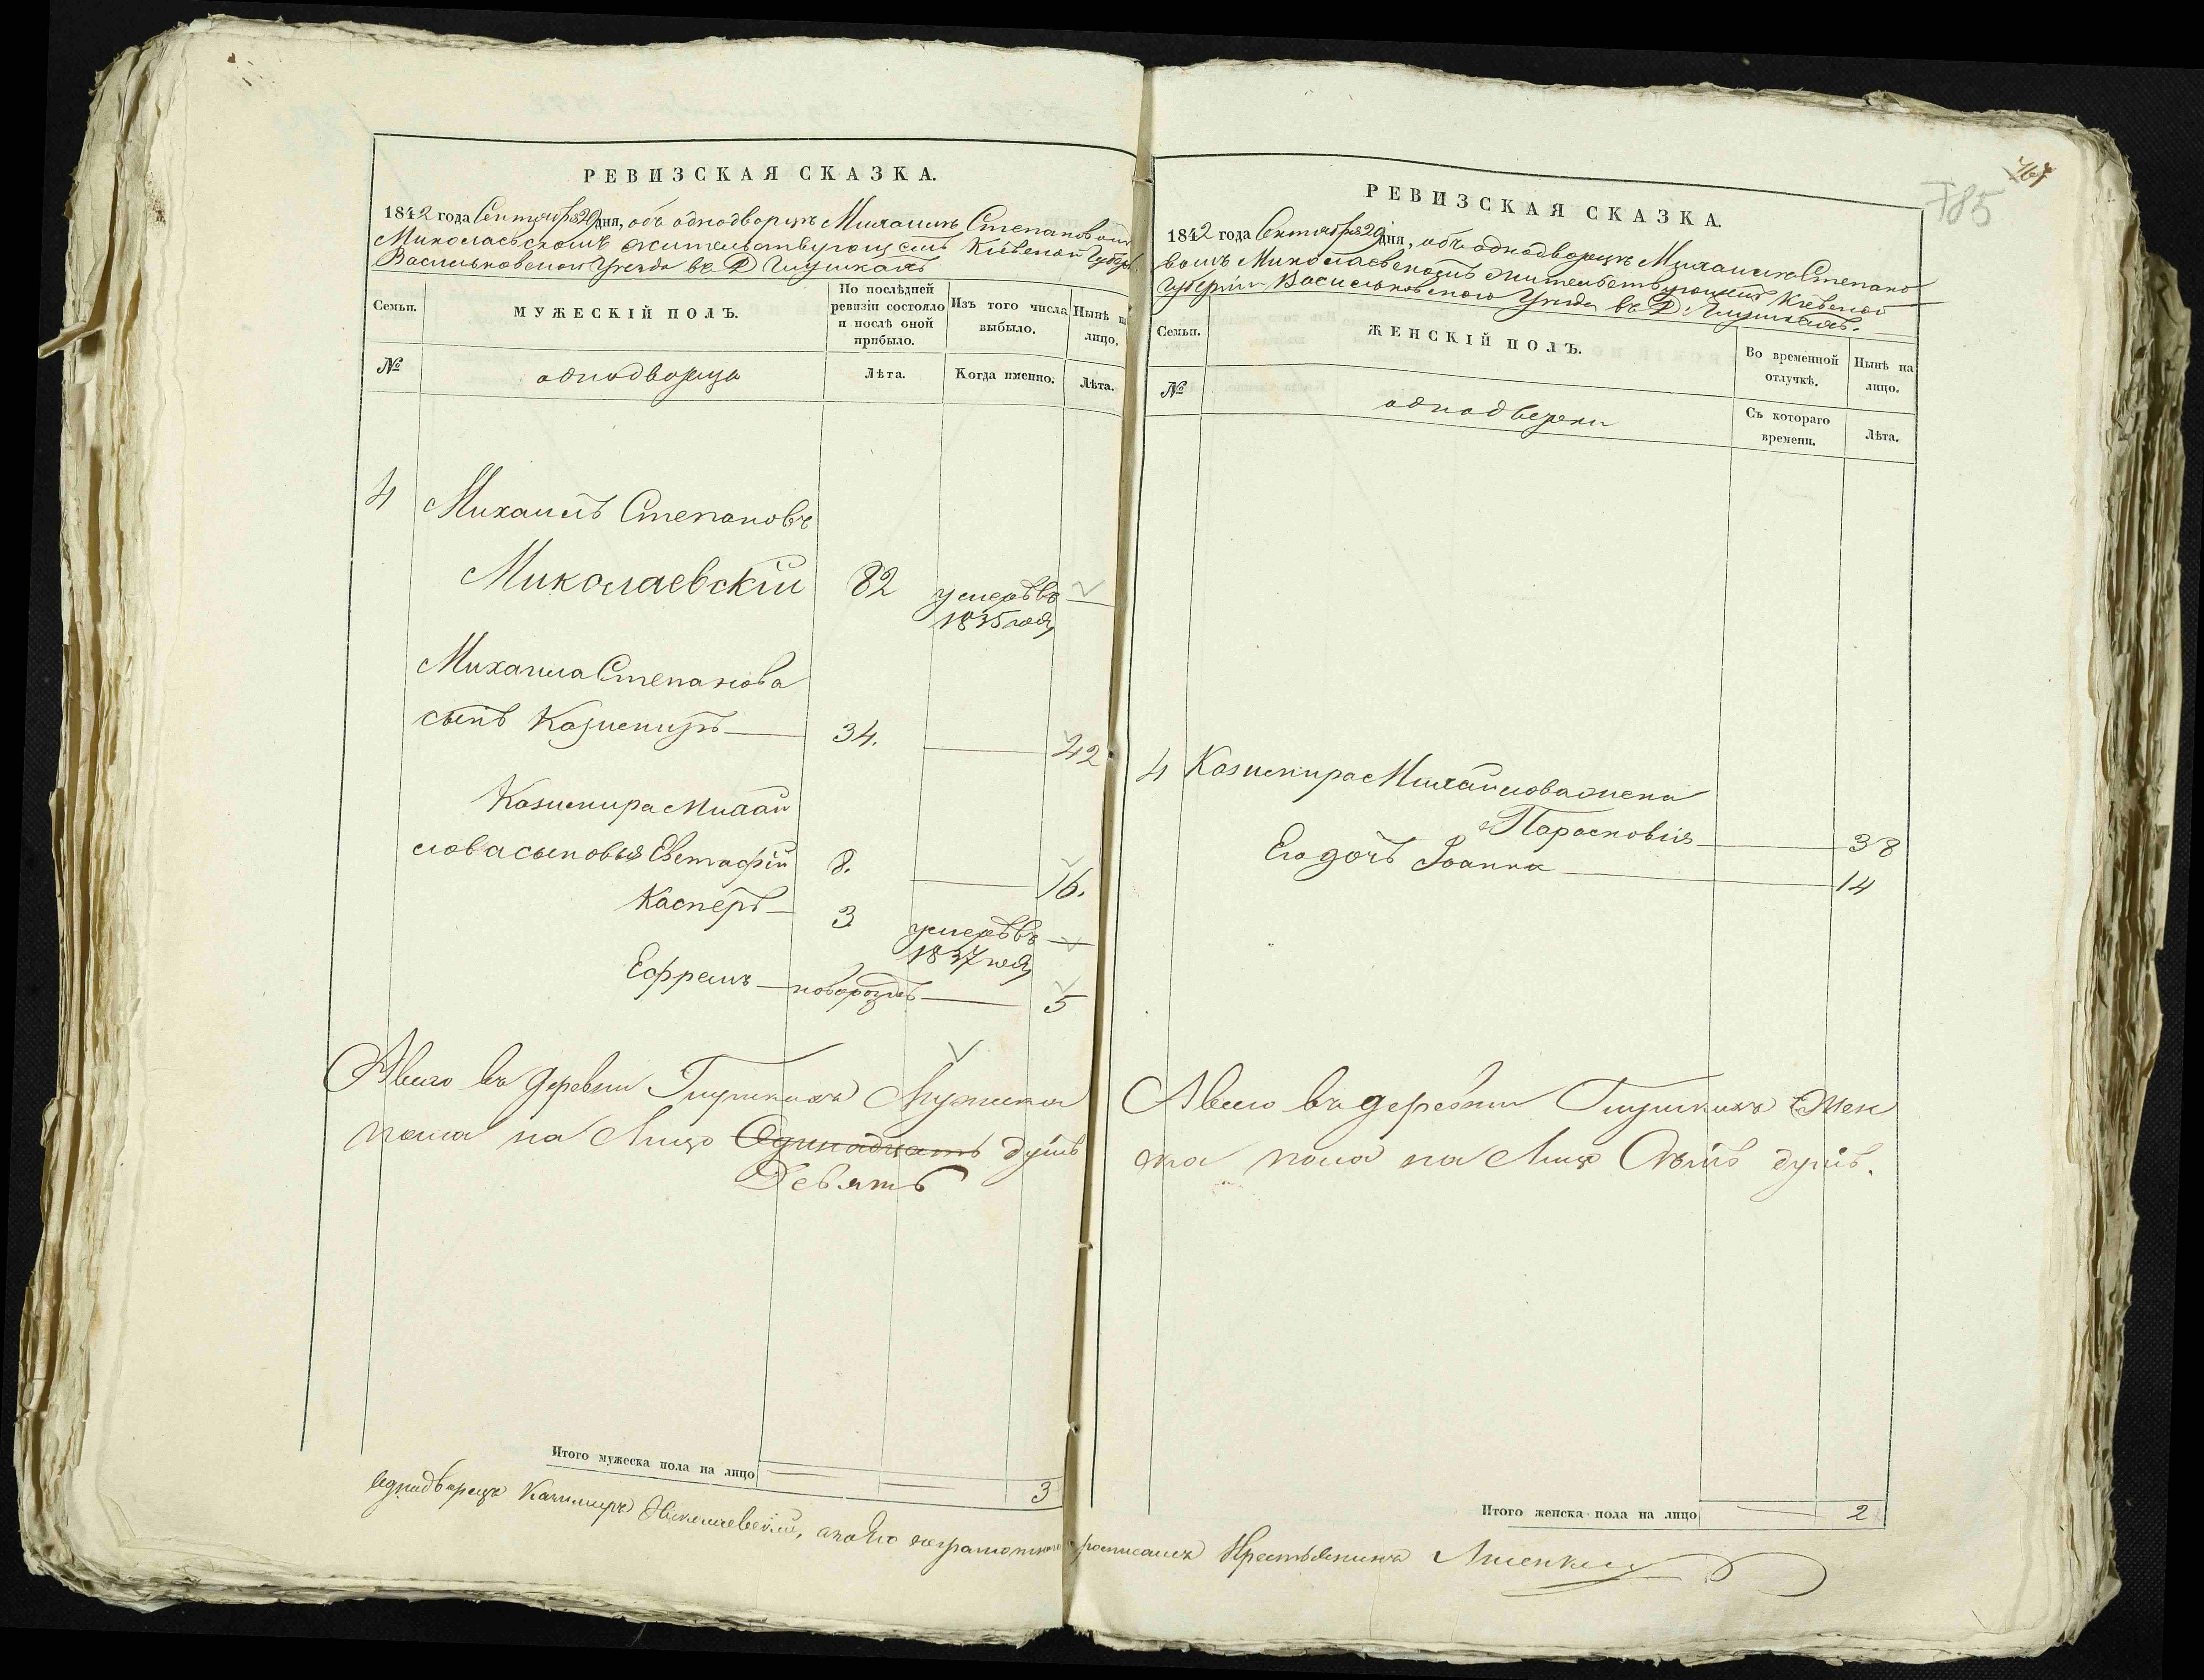 РЕВИЗСКАЯ СКАЗКА.
1842 года Сентября 29 дня, объ однодворцѣ Михаилѣ Степановомъ
Миколаевскомъ жительствующемъ Кіевской Губер
Васильковскаго Уѣзда въ Д Глушкахъ
Семьи.
МУЖЕСКІЙ ПОЛЪ.
По послѣдней
ревизіи состояло
и послѣ оной
прибыло.
Изъ того числа
выбыло.
Нынѣ н
лицо.
№
однодворцы
Лѣта.
Когда именно.
Лѣта.
4 Михаилъ Степановъ
Миколаевскій 82 умеръ въ
1835 году
Михаила Степанова
сынъ Казимиръ 34. 42
Казимира Михай
лова сыновья Евстафій 8. 16.
Касперъ 3 умеръ въ
1837 году
Ефремъ новорозд 5
А всего въ деревни Глушкахъ Мужеска
пола на Лицо Одинадцать душъ
Девять
Итого мужеска пола на лицо 3
785
РЕВИЗСКАЯ СКАЗКА.
1842 года Сентября 29 дня, объ однодворцѣ Михаилѣ Степано
вомъ Миколаевскомъ жительствующемъ Кіевской
Губерніи Васильковскаго Уѣзда въ Д: Глушкахъ.
Семьи.
ЖЕНСКІЙ ПОЛЪ.
Во временной
отлучкѣ.
Нынѣ на
лицо.
№
однодворки
Съ котораго
времени.
Лѣта.
4 Казимира Михайлова жена
Парасковія 38
Его дочь Іоанна 14
А всего въ деревни Глушкахъ Жен
ска пола на Лицо душъ.
Итого женска пола на лицо 2
Однодворецъ Казимиръ Миколаевскій, а по его неграмотности росписался Крестьянинъ